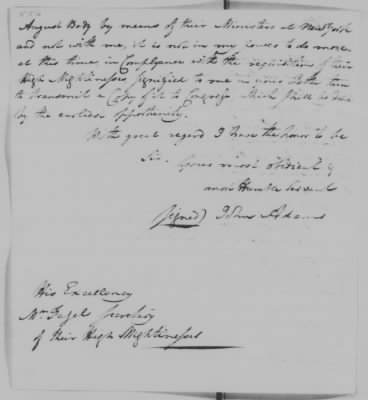 August Body by means of their Ministers at New York
and not with me, it is not in my power to do more,
at this time in Compliance with the requisition of their
High Mightinesses signified to me in your Letter than
to transmit a Copy of it to Congress which shall be done
by the earliest opportunity.
With great regard I have the honor to be
Sir. Your most obedient &
most Humble Servant
(signed) John Adams
His Excellency
Mr. Fagel Secretary
of their High Mightinesses